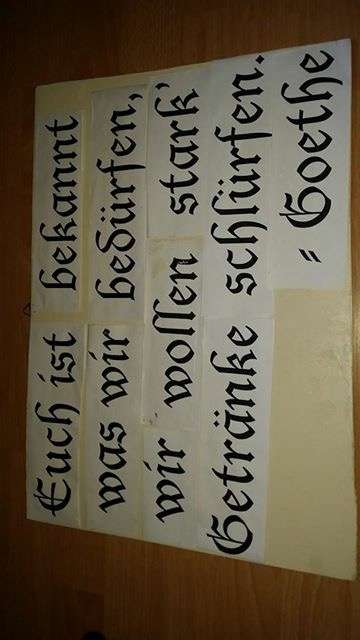 Euch ist bekannt
was wir bedürfen,
wir wollen stark'
Getränke schlürfen.
= Goethe